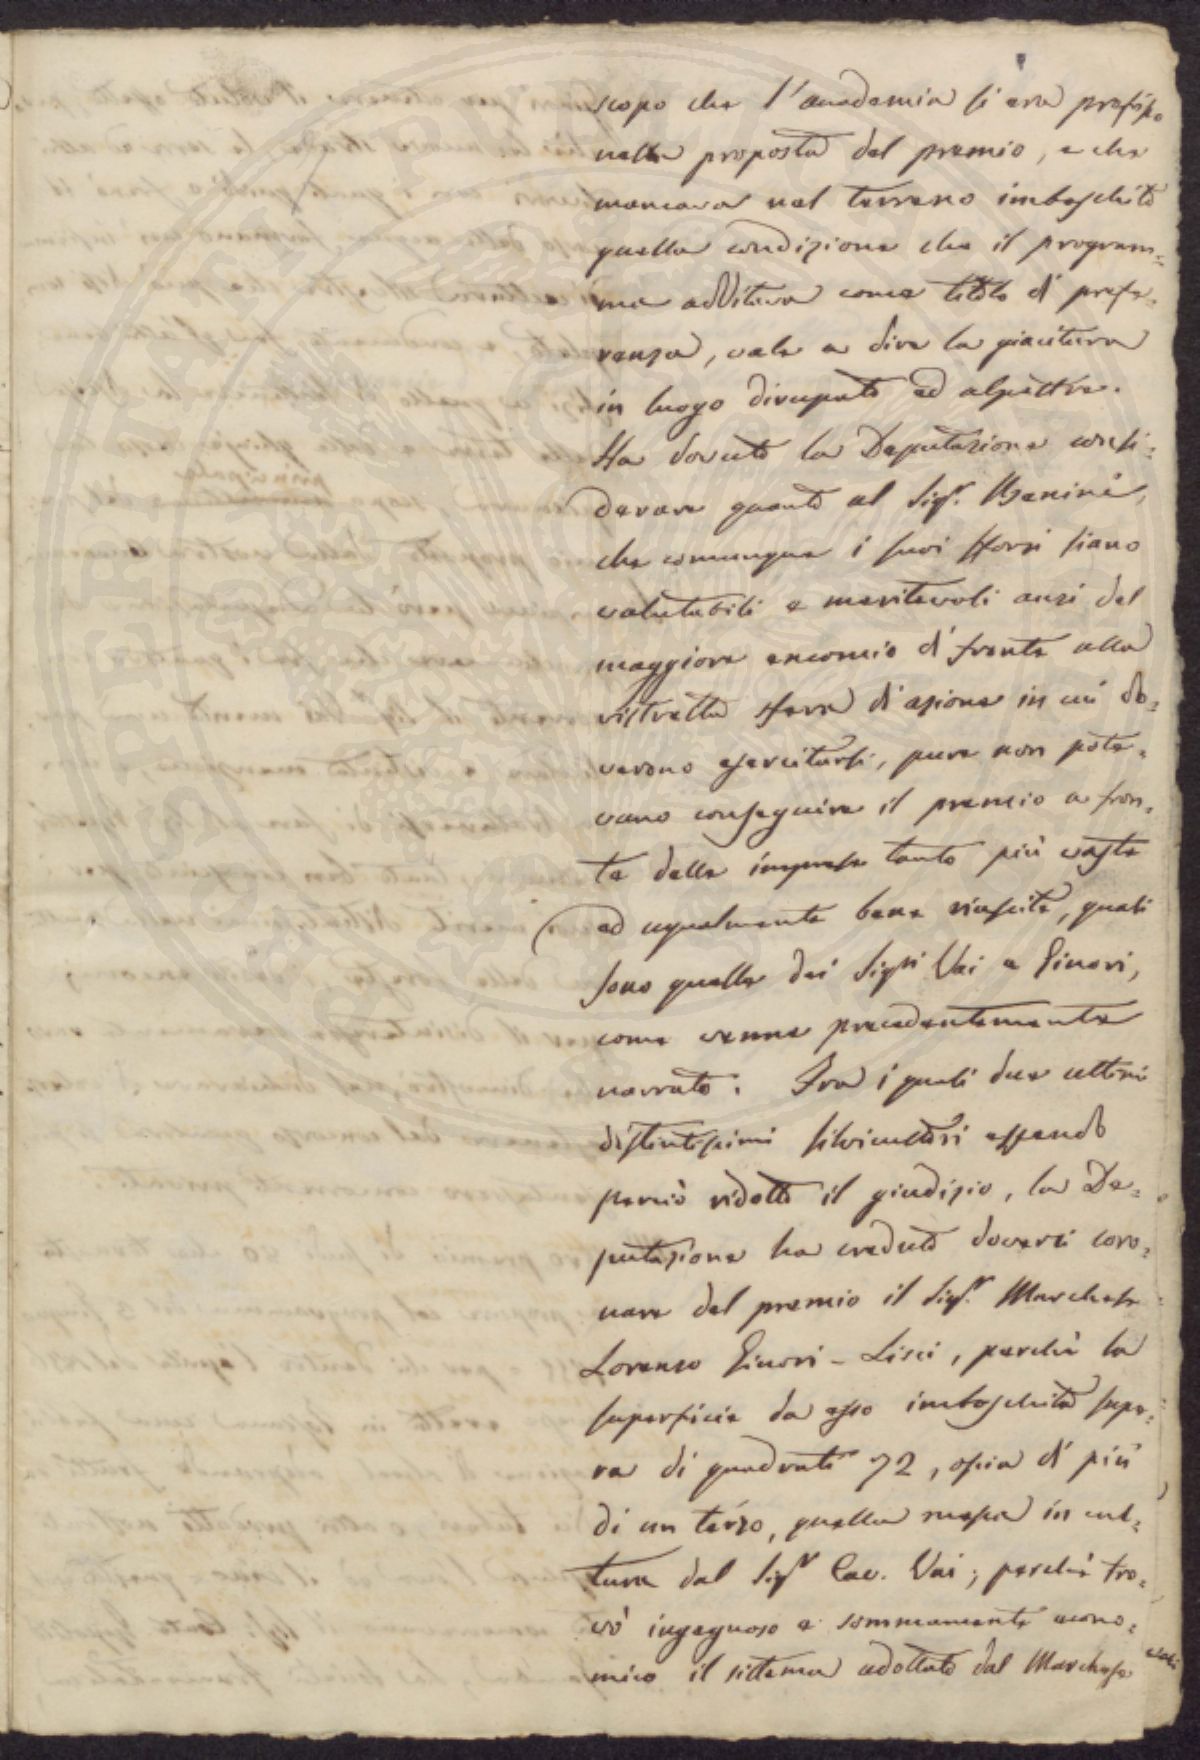 scopo che l'accademia si era prefisso
nella proposta del premio, e che
mancava nel terreno imboschito
quella condizione che il program=
ma additava come titolo di prefe=
renza, vale a dire la giacitura
in luogo dirupato ed alpestre.
Ha dovuto la Deputazione consi=
derare quanto al Sigr. Banini,
che comunque i suoi sforzi siano
valutabili e meritevoli anzi del
maggiore encomio di fronte alla
ristretta sfera di azione in cui do=
verono esercitarsi, pure non pote=
vano conseguire il premio a fron=
te delle imprese tanto più vaste
ed ugualmente bene riuscite, quali
sono quelle dei Sigri Vai e Ginori,
come venne precedentemente
narrato. Fra i quali due ultimi
distintissimi silvicultori essendo
perciò ridotto il giudizio, la De=
putazione ha creduto doversi coro=
nare del premio il Sigr. Marchese
Lorenzo Ginori-Lisci, perchè la
superficie da esso imboschita supe=
ra di quadrati 72, ossia di più
di un terzo, quella messa in cul=
tura dal Sigr Cav. Vai; perchè tro=
vò ingegnoso e sommamente econo=
mico il sistema adottato dal Marchese